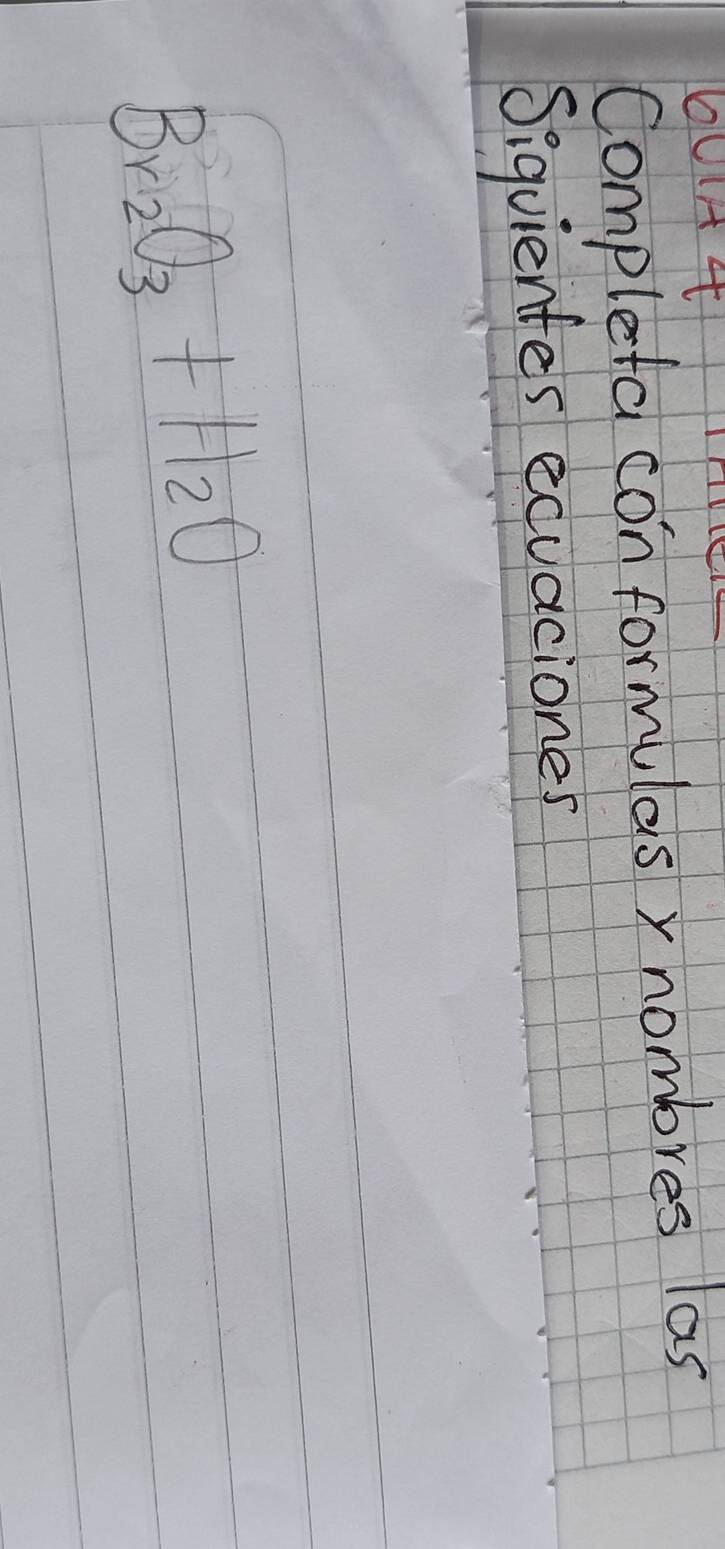 GUIA 4
Completa con formulas y nombres las
Siguientes ecuaciones
Br2O3 + H2O